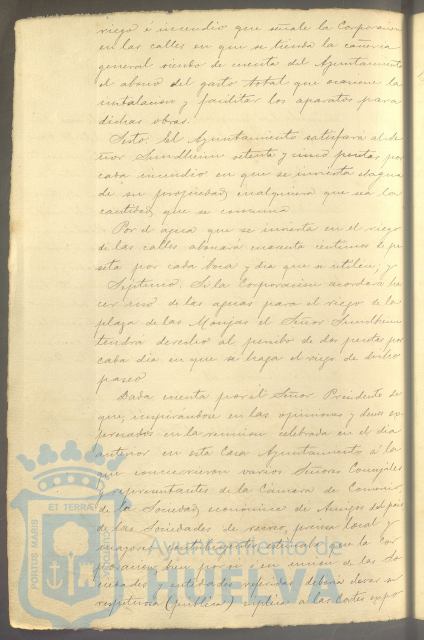 riego é incendio que señale la Corporacion
en las calles en que se tienda la cañeria
general siendo de cuenta del Ayuntamiento
el abono del gasto total que ocasione la
instalacion y facilitar los aparatos para
dichas obras.
Sesto. El Ayuntamiento satisfará al Se
ñor Sundheim setenta y cinco pesetas por
cada incendio en que se invierta el agua
de su propiedad, cualquiera que sea la
cantidad que se consuma.
Por el agua que se invierta en el riego
de las calles abonará cincuenta centimos de pe
seta por cada boca y dia que se utilice; y
Septimo. Si la Corporacion acordara ha
cer uso de las aguas para el riego de la
plaza de las Monjas el Señor Sundheim
tendrá derecho al percibo de dos pesetas por
cada dia en que se haga el riego de dicho
paseo.
Dada cuenta por el Señor Presidente de
que, inspirándose en las opiniones y deseos ex
presados en la reunion celebrada en el dia
anterior en esta Casa Ayuntamiento á la
que concurrieron varios Señores Concejales
y representantes de la Cámara de Comercio,
de la Sociedad económica de Amigos del pais
de las Sociedades de recreo, prensa local y
mayores contribuyentes que la Cor
poracion bien por si ó en union de las So
ciedades y entidades referidas deberia elevar
respetuosa suplica á las Cortes
PORTUS MARIS
ET TERRAE
CUSTODIA
Ayuntamiento de
HUELVA